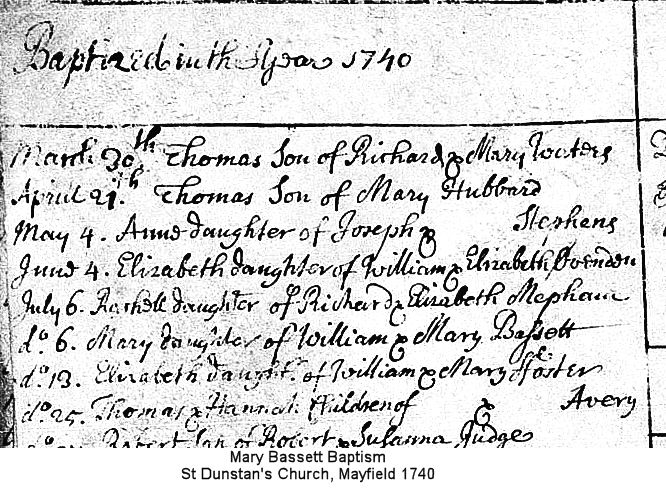 Baptized in the Year 1740
March 30th Thomas Son of Richard & Mary Waters
April 21.th Thomas Son of Mary Hubbard
May 4. Anne daughter of Joseph & Stephens
June 4. Elizabeth daughter of William & Elizabeth Ovenden
July 6. Rachell daughter of Richard & Elizabeth Mepham
do. 6. Mary daughter of William & Mary Bassett
do. 13. Elizabeth daughtr. of William & Mary Foster
do. 25. Thomas & Hannah Children of & Avery
do. Robert Son of Robert & Susanna Judge
Mary Bassett Baptism
St Dunstan's Church, Mayfield 1740